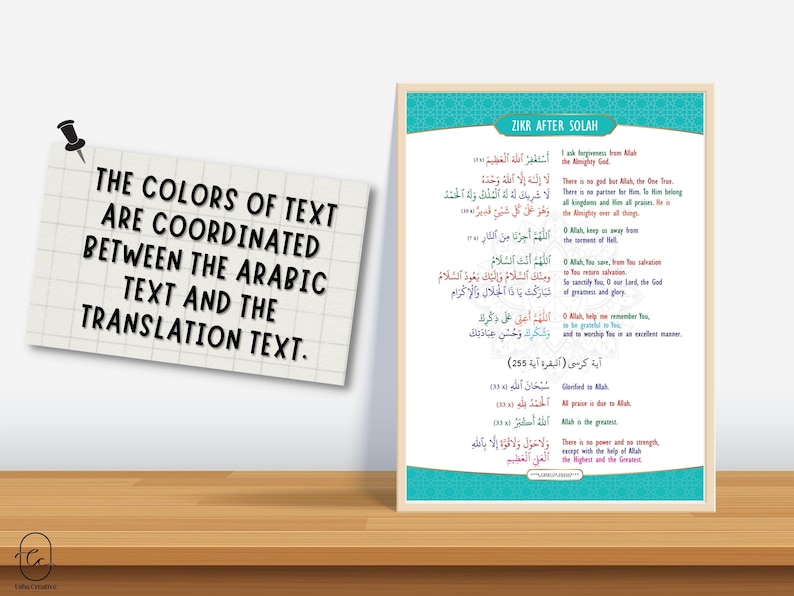 THE COLORS OF TEXT
ARE COORDINATED
BETWEEN THE ARABIC
TEXT AND THE
TRANSLATION TEXT.
ZIKR AFTER SOLAH
أَسْتَغْفِرُ ٱللهَ ٱلْعَظِيمَ (3 x)
I ask forgiveness from Allah
the Almighty God.
لَا إِلَـٰهَ إِلَّا ٱللهُ وَحْدَهُ
لَا شَرِيكَ لَهُ لَهُ ٱلْمُلْكُ وَلَهُ ٱلْحَمْدُ
وَهُوَ عَلَىٰ كُلِّ شَيْئٍ قَدِيرٌ (10 x)
There is no god but Allah, the One True.
There is no partner for Him. To Him belong
all kingdoms and Him all praises. He is
the Almighty over all things.
اَللَّهُمَّ أَجِرْنَا مِنَ ٱلنَّارِ (7 x)
O Allah, keep us away from
the torment of Hell.
اَللَّهُمَّ أَنْتَ ٱلسَّلَامُ
وَمِنْكَ ٱلسَّلَامُ وَإِلَيْكَ يَعُودُ ٱلسَّلَامُ
تَبَارَكْتَ يَا ذَا ٱلْجَلَالِ وَٱلْإِكْرَامِ
O Allah, You save, from You salvation
to You return salvation.
So sanctify You, O our Lord, the God
of greatness and glory.
اَللَّهُمَّ أَعِنِّى عَلَى ذِكْرِكَ
وَشُكْرِكَ وَحُسْنِ عِبَادَتِكَ
O Allah, help me remember You,
to be grateful to You,
and to worship You in an excellent manner.
آية كرسى (البقرة آية 255)
سُبْحَانَ ٱللهِ (33 x)
Glorified to Allah.
ٱلْحَمْدُ لِلّٰهِ (33 x)
All praise is due to Allah.
ٱللهُ أَكْبَرُ (33 x)
Allah is the greatest.
وَلَاحَوْلَ وَلَاقُوَّةَ إِلَّا بِٱللهِ
ٱلْعَلِيِّ ٱلْعَظِيمِ
There is no power and no strength,
except with the help of Allah
the Highest and the Greatest.
Usha Creative